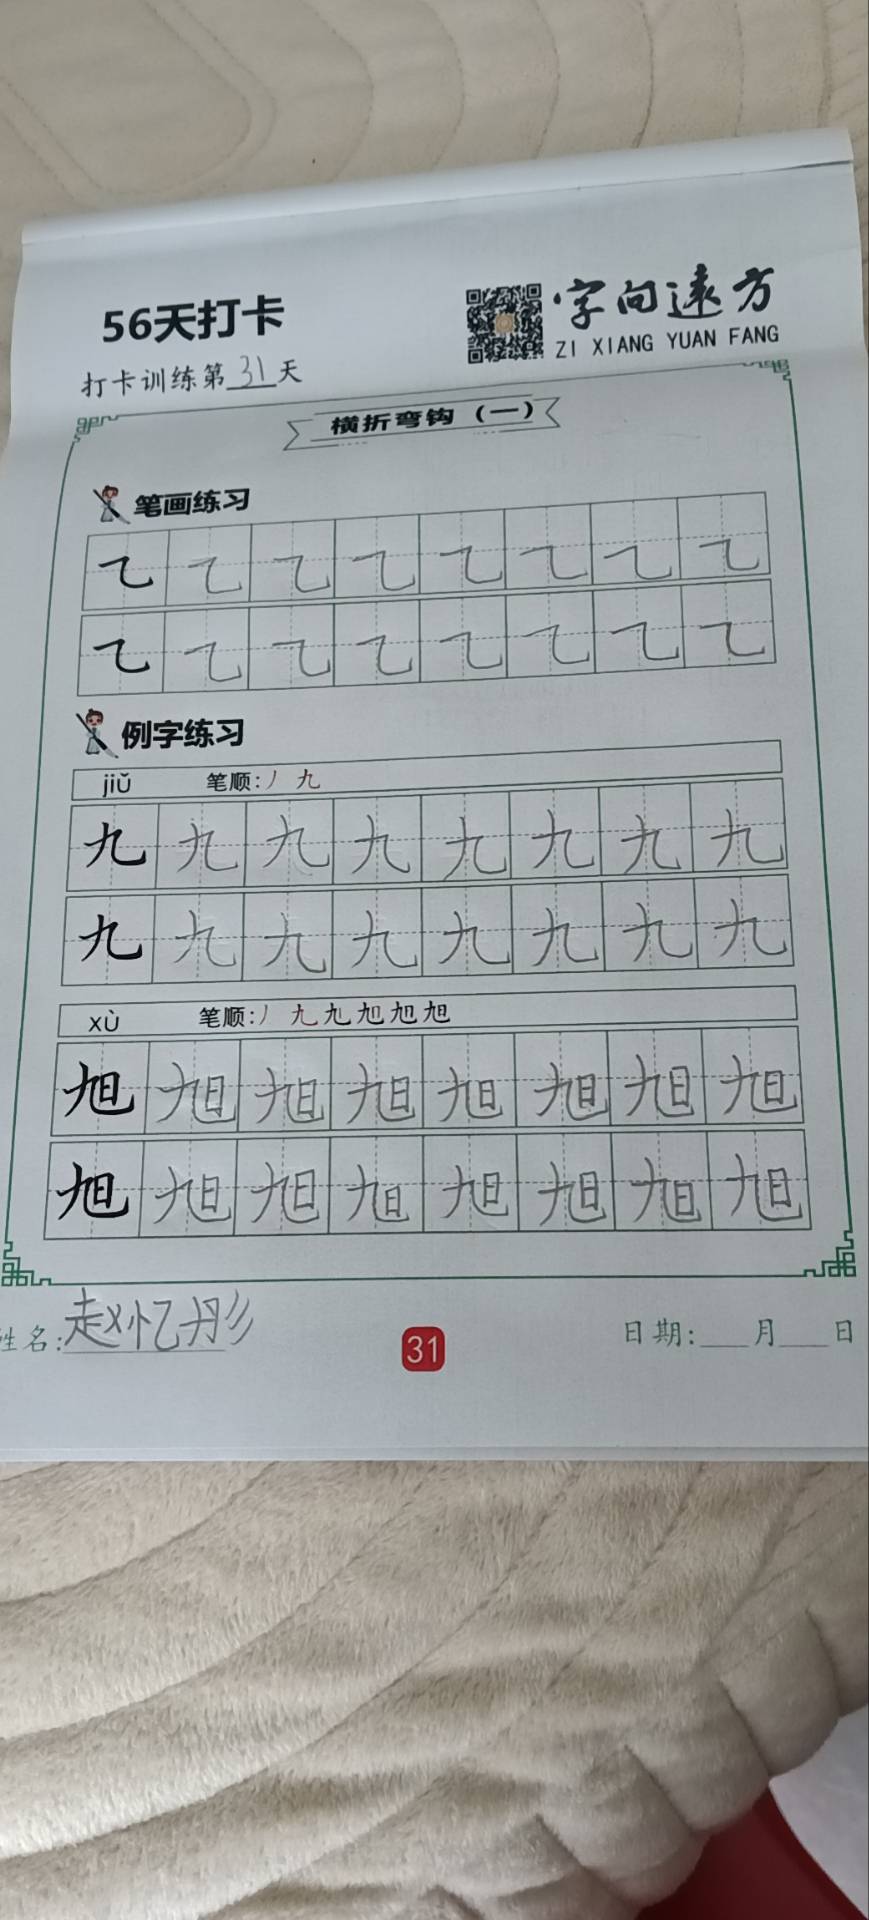 56天打卡
字向远方
ZI XIANG YUAN FANG
打卡训练第31天
横折弯钩（一）
笔画练习
乙乙乙乙乙乙乙乙
乙乙乙乙乙乙乙乙
例字练习
jiǔ 笔顺:丿九
九九九九九九九九
九九九九九九九九
xù 笔顺:丿九九旭旭旭
旭旭旭旭旭旭旭旭
旭旭旭旭旭旭旭旭
姓名:赵忆彤
31
日期:___月___日